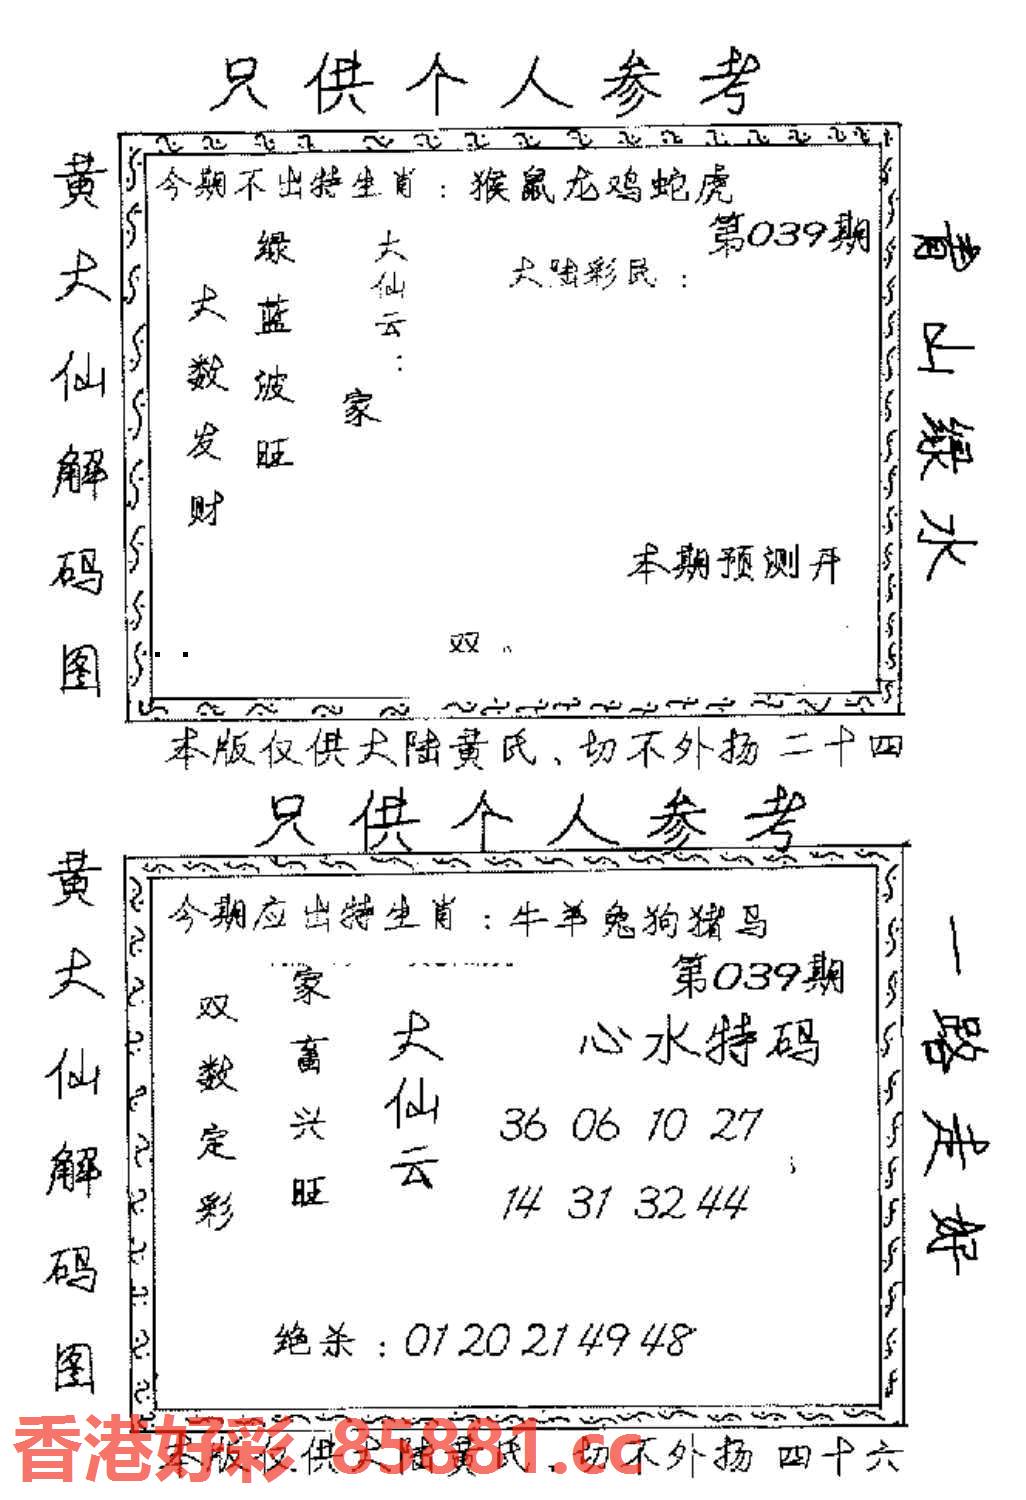 只供个人参考
黄大仙解码图
今期不出特生肖：猴鼠龙鸡蛇虎
第039期
青山绿水
大陆彩民：
大仙云：
绿蓝波旺
大数发财
家
本期预测开
双
本版仅供大陆黄氏、切不外扬 二十四
只供个人参考
黄大仙解码图
今期应出特生肖：牛羊兔狗猪马
第039期
一路走好
心水特码
大仙云
家畜兴旺
双数定彩
36 06 10 27
14 31 32 44
绝杀：01 20 21 49 48
本版仅供大陆黄氏、切不外扬 四十六
香港好彩 85881.cc